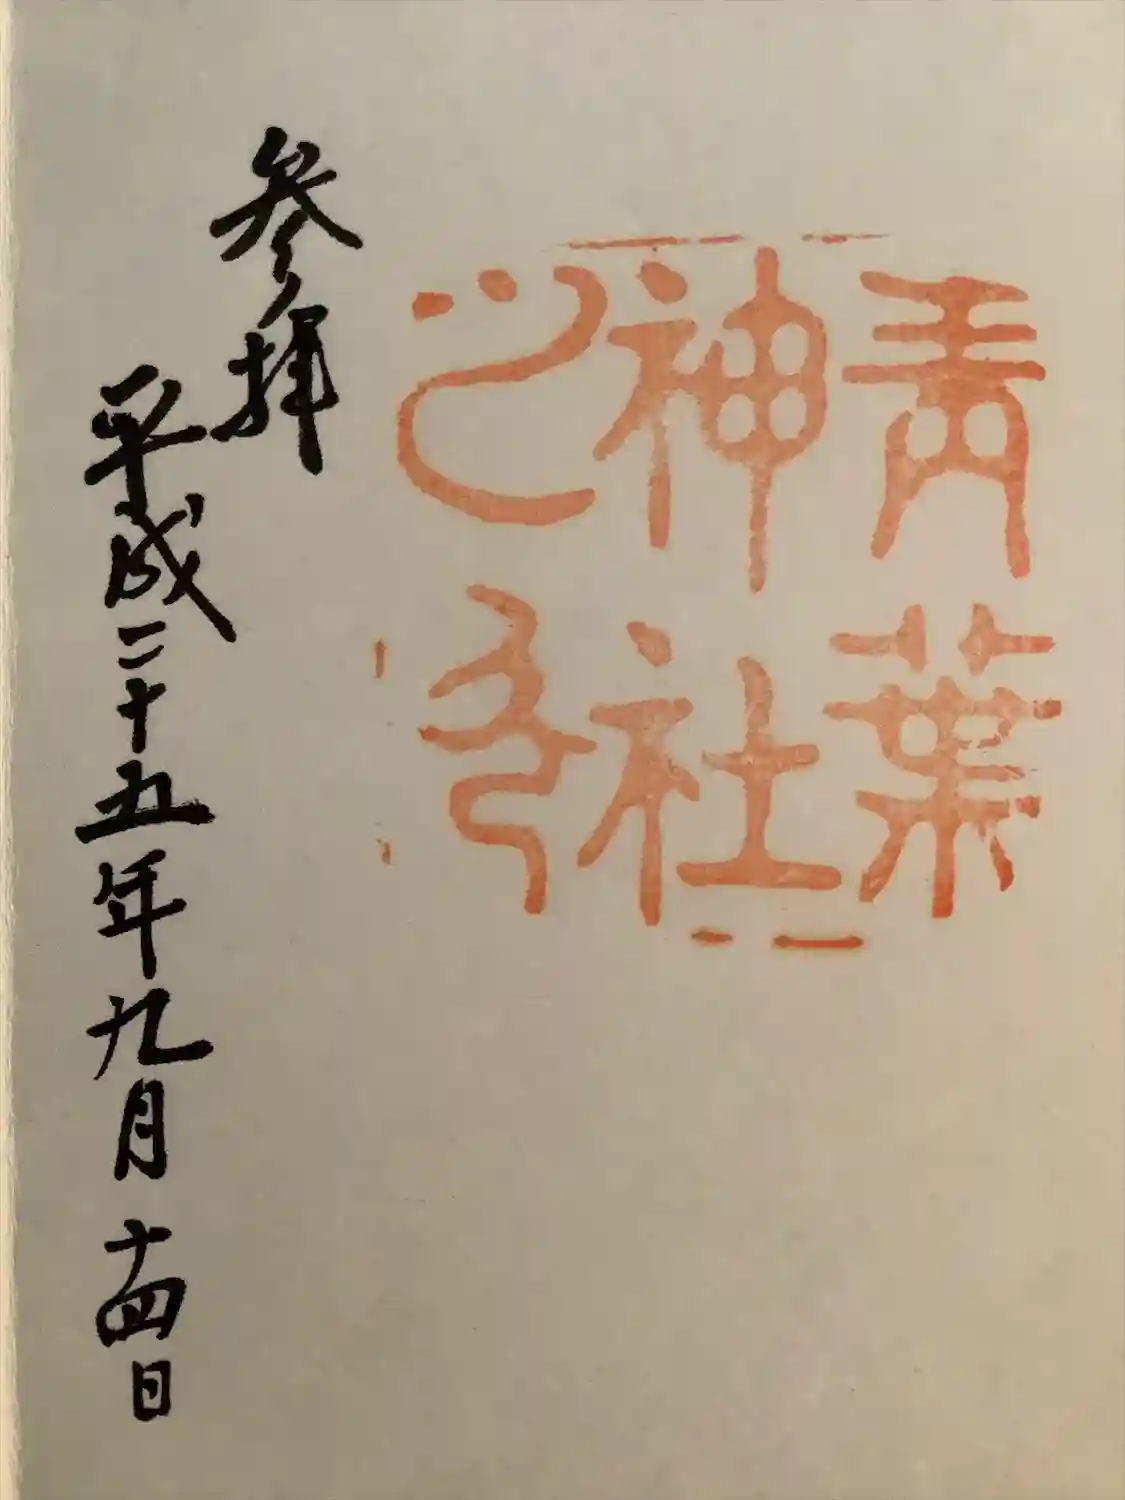 青葉
神社
之印
参拝
平成二十五年九月十四日